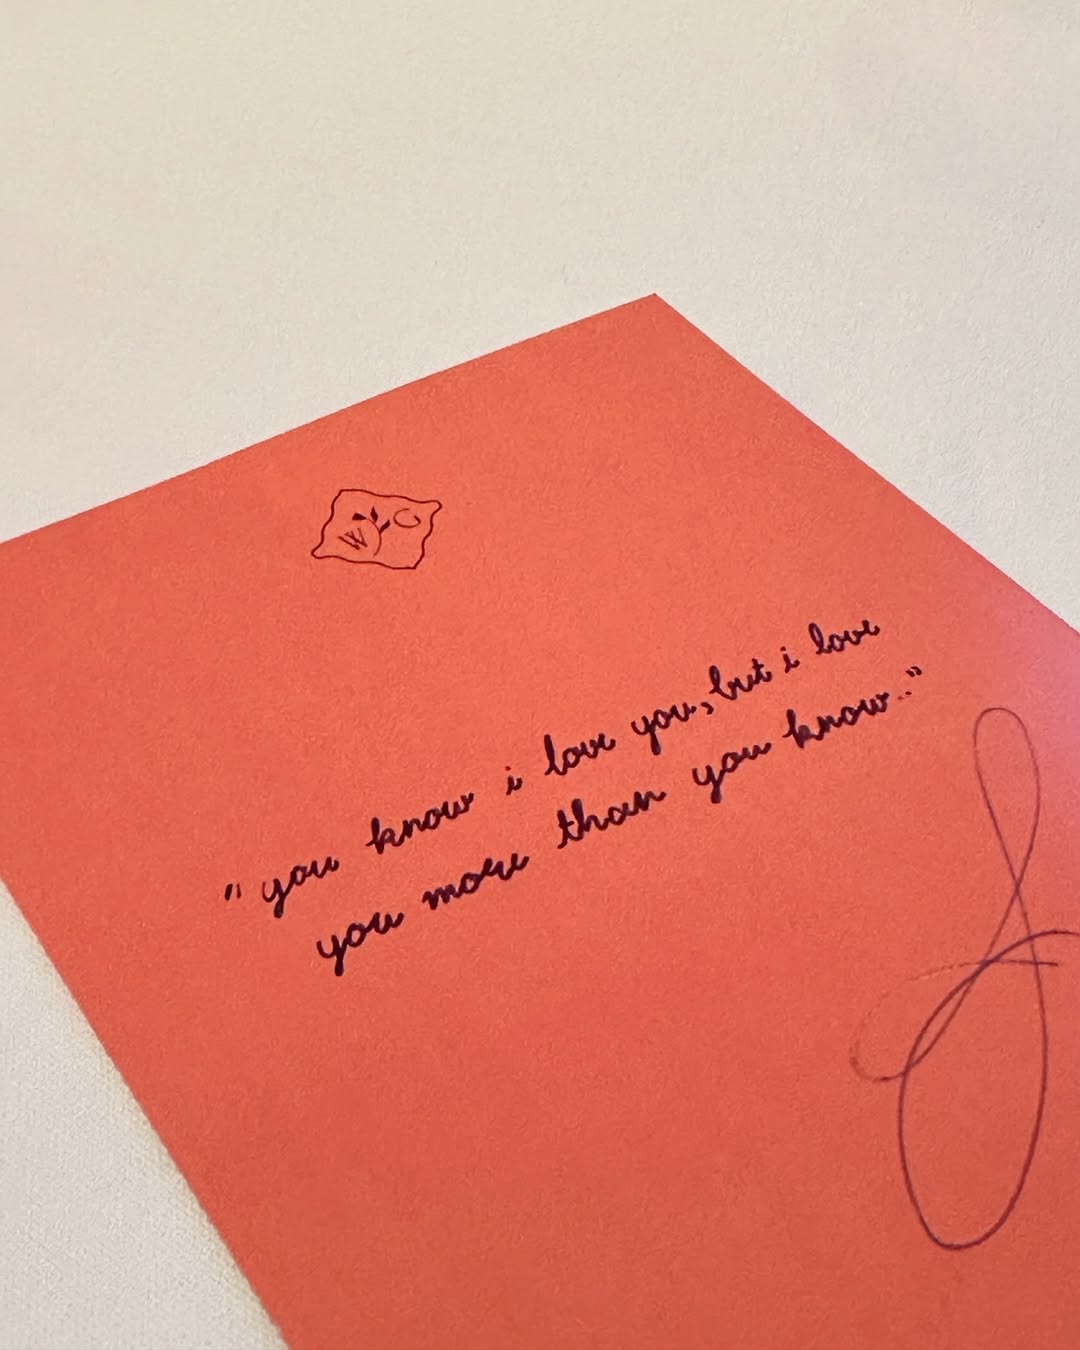 W C
"you know i love you, but i love
you more than you know.."